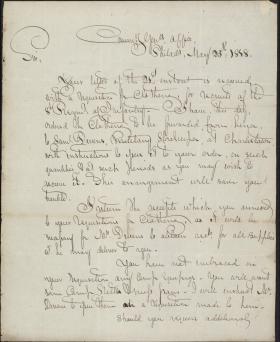 Commy Genls Office
Philada, May 25th 1838.
Sir,
Your letter of the instant is received
with a requisition for Clothing for recruits of the
Regmt of Infantry. I have this day
ordered the Clothing to be forwarded from here
to Saml Military Storekeeper, at Charleston
with instructions to issue it to your order, in such
quantities & at such periods as you may wish to
receive it. This arrangement will save you
trouble.
I return the receipts which you annexed
to your requisitions for Clothing, as it will be
necessary for Mr. to for all supplies
he may deliver to you.
You have not embraced in
your requisition any Camp Equipage. You will want
some Camp Kettles & Mess pans. I will instruct Mr.
to issue them on a requisition made to him.
Should you require additional